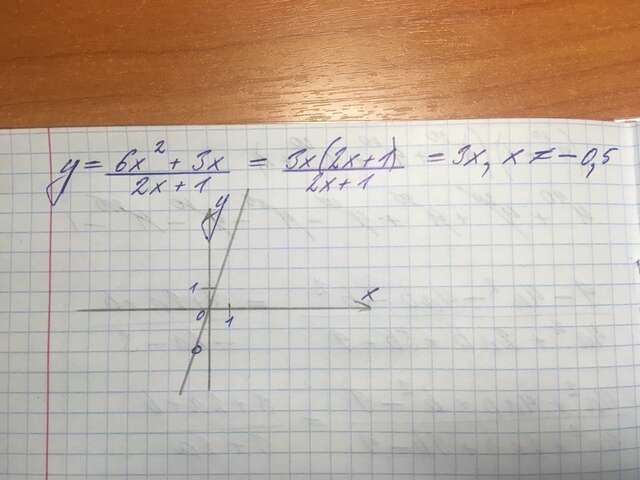 y = 6x² + 3x / 2x + 1 = 3x(2x+1) / 2x+1 = 3x, x ≠ -0,5
y
1
x
0
1